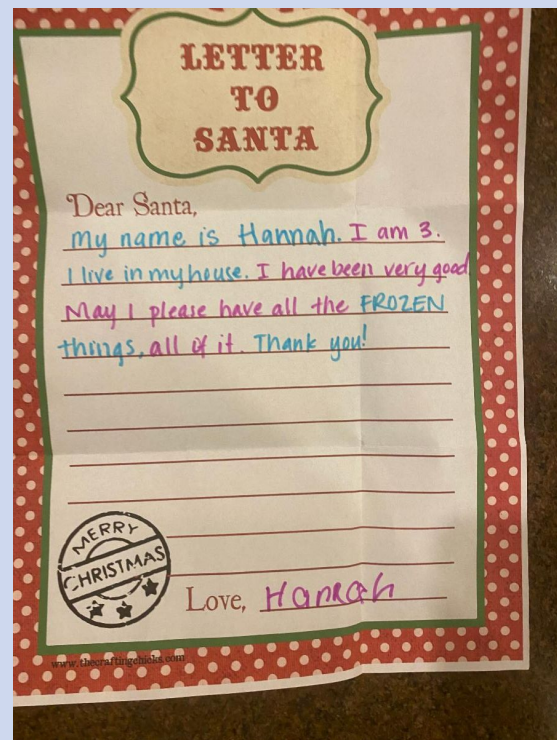 LETTER
TO
SANTA
Dear Santa,
My name is Hannah. I am 3.
I live in my house. I have been very good
May I please have all the FROZEN
things, all of it. Thank you!
MERRY
CHRISTMAS
Love, Hannah
www.thecraftingchicks.com